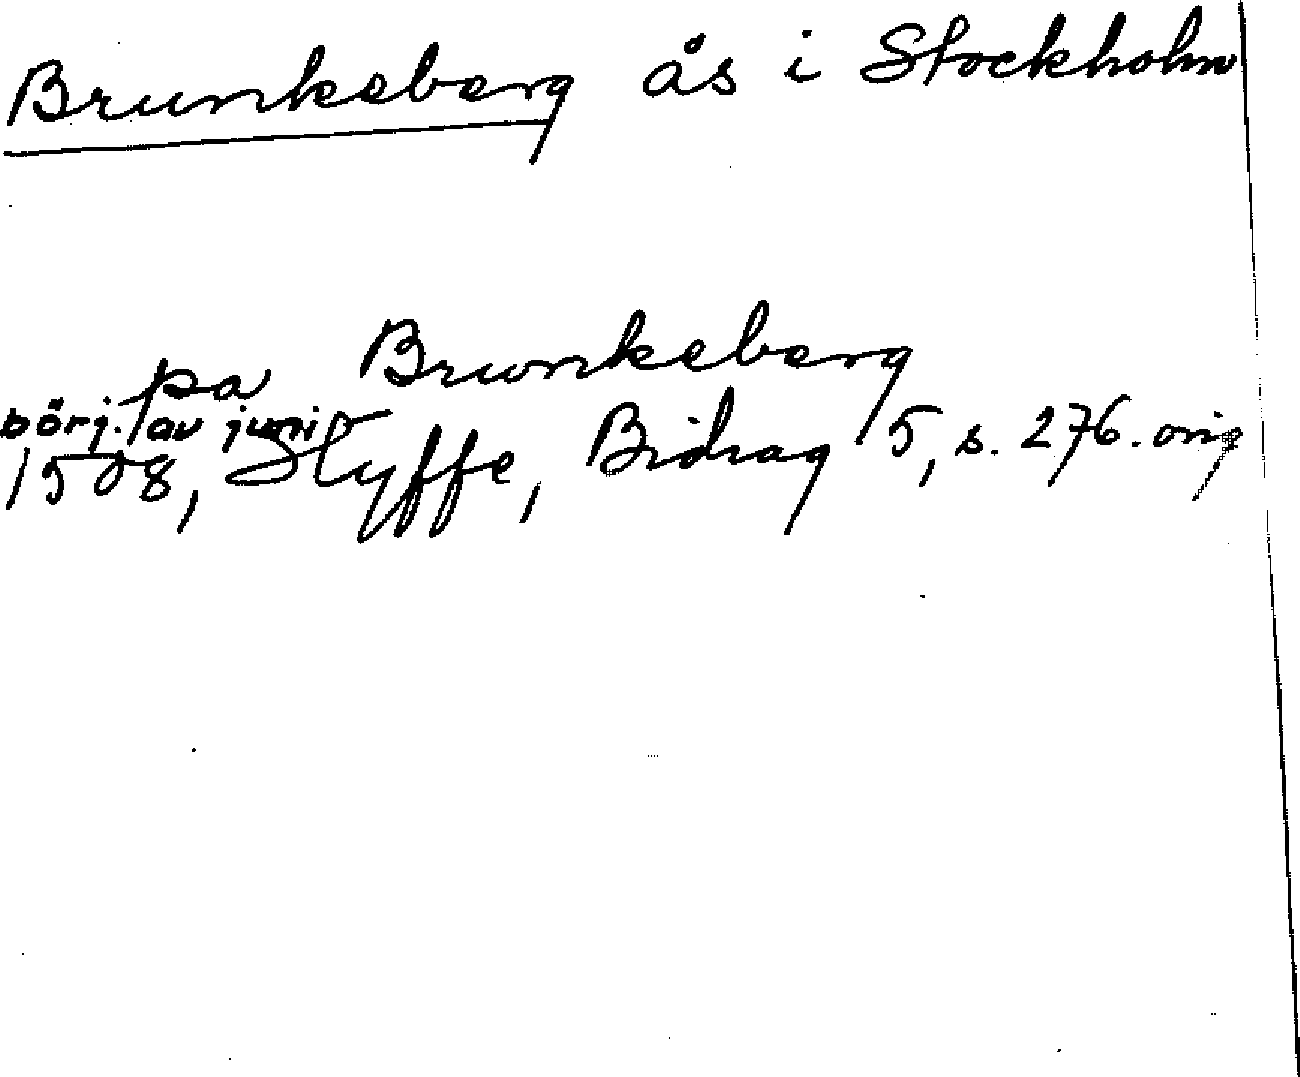 Brunkeberg ås i Stockholm
pa Brunkeberg
börj. av juni
1508, Styffe, Bidrag 5, s. 276. orig